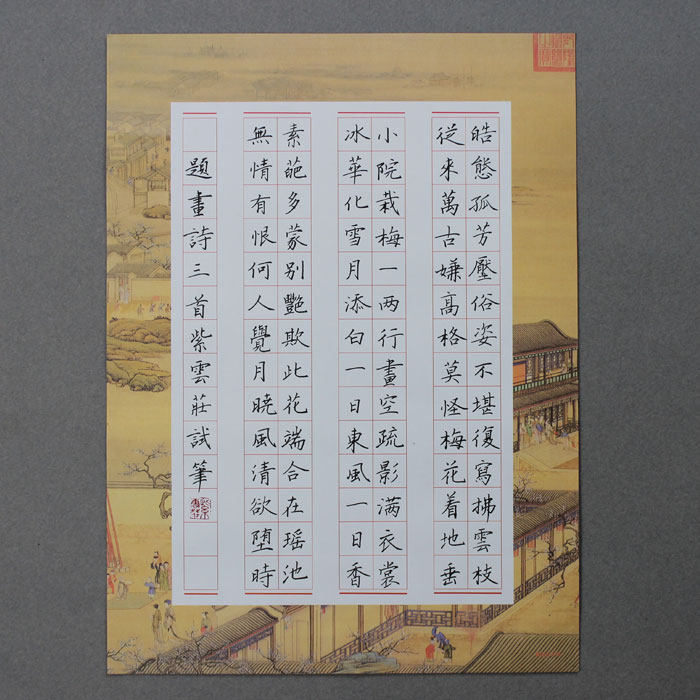 皓態孤芳壓俗姿不堪復寫拂雲枝
從來萬古嫌高格莫怪梅花着地垂
小院栽梅一两行畫空疏影满衣裳
冰華化雪月添白一日東風一日香
素葩多蒙别艷欺此花端合在瑶池
無情有恨何人覺月曉風清欲墮時
題畫詩三首紫雲莊試筆